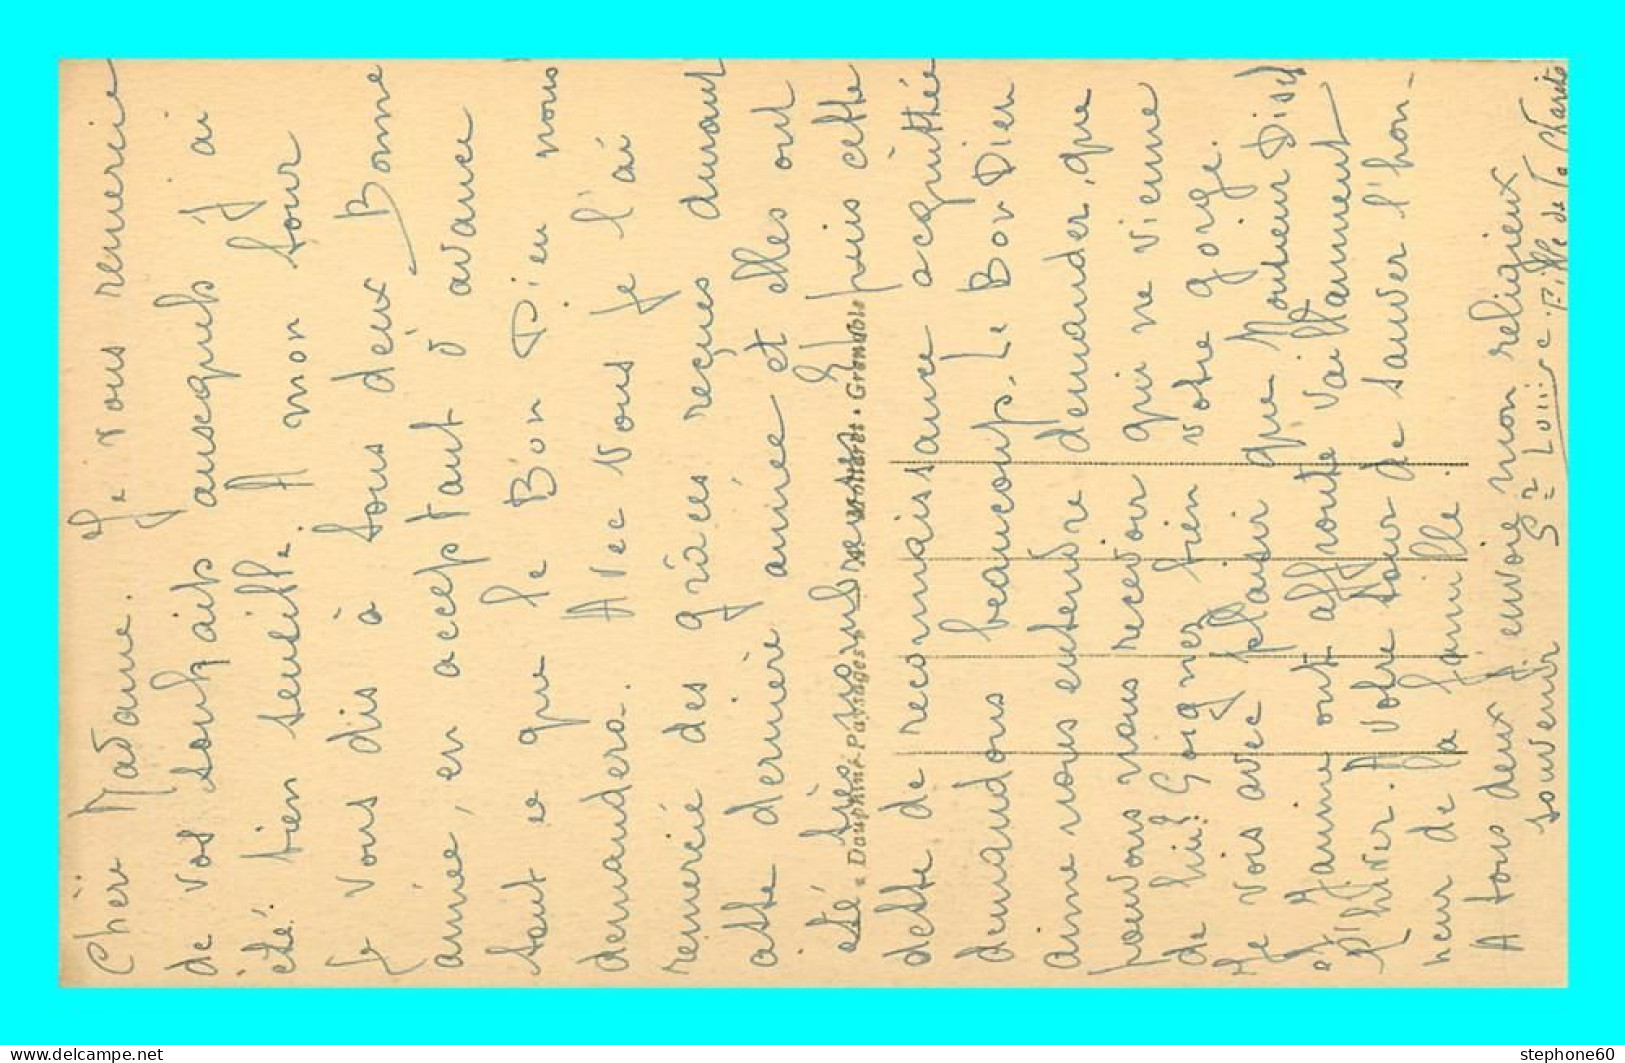 Chère Madame. Je vous remercie
de vos souhaits auxquels j'ai
été bien sensible. A mon tour
je vous dis à tous deux Bonne
année, en acceptant d'avance
tout ce que le Bon Dieu nous
demandera. Avec vous je l'ai
remercié des grâces reçues durant
cette dernière année et elles ont
été très nombreuses. Et puis cette
dette de reconnaissance acquittée
demandons beaucoup. Le Bon Dieu
aime nous entendre demander, que
pouvons nous recevoir qui ne vienne
de lui? Soignez bien votre gorge.
Je vois avec plaisir que Monsieur
et Jeanine ont affronté vaillamment
l'hiver. A votre tour de sauver l'hon-
neur de la famille.
A tous deux j'envoie mon religieux
souvenir
Sr Louise. Fille de la Charité
« Dauphiné-Paysages » Mollaret • Grenoble
stephone60